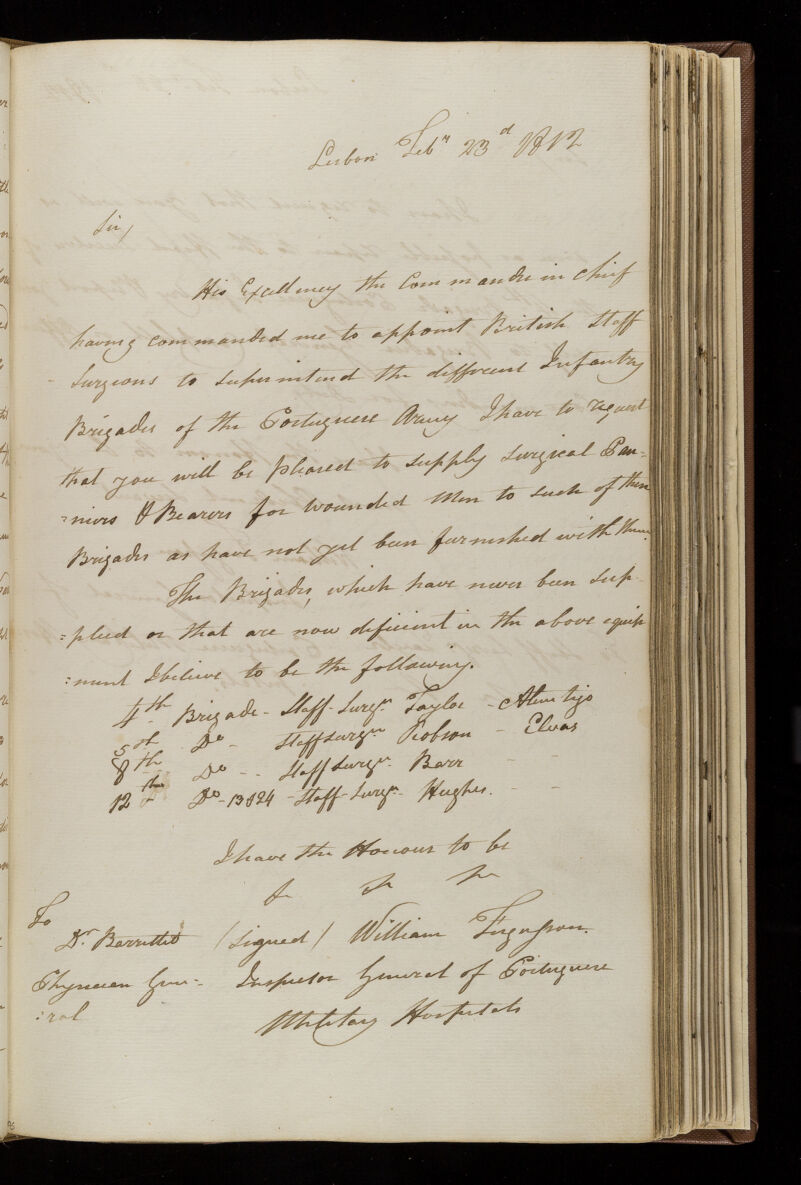 Lisbon Feby 23d 1812
Sir,
His Excellency the Commander in Chief
having commanded me to appoint British Staff
Surgeons to superintend the different Infantry
Brigades of the Portuguese Army I have to request
that you will be pleased to supply Surgical Pan-
=niers & Bearers for wounded Men to such of their
Brigades as have not yet been furnished with them.
The Brigades, which have never been sup-
=plied or that are now deficient in the above equip
=ment I believe to be the following.
4th Brigade - Staff-Surgn Taylor - Alemtejo
5th Do - Staff Surgn Robson - Elvas
8th Do - - Staff Surgn Barr - -
12th Do - 13 & 24 - Staff-Surgn Hughes. - -
I have the Honour to be
&c &c &c
To
Dr. (Signed) William Fergusson.
Physician Gene- Inspector General of Portuguese
=ral
Military Hospitals